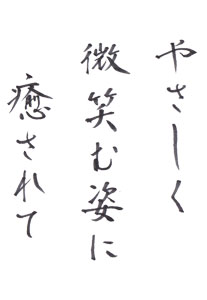 やさしく
微笑む姿に
癒されて